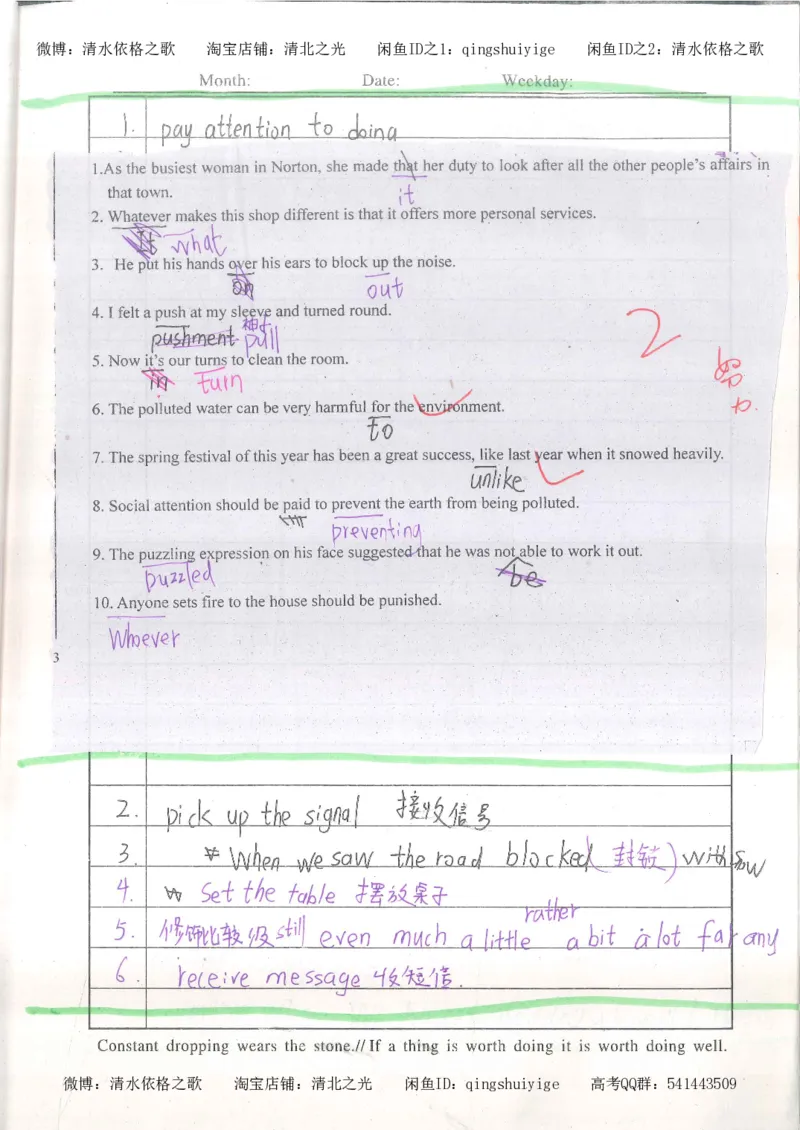 微博：清水依格之歌 淘宝店铺：清北之光 闲鱼ID之1：qingshuiyige 闲鱼ID之2：清水依格之歌
Month: Date: Weekday:
1. pay attention to doing
1.As the busiest woman in Norton, she made that her duty to look after all the other people's affairs in
that town.
it
2. Whatever makes this shop different is that it offers more personal services.
It what
3. He put his hands over his ears to block up the noise.
on out
4. I felt a push at my sleeve and turned round.
pushment pull
5. Now it's our turns to clean the room.
in turn
2
6. The polluted water can be very harmful for the environment.
to
7. The spring festival of this year has been a great success, like last year when it snowed heavily.
unlike
8. Social attention should be paid to prevent the earth from being polluted.
preventing
9. The puzzling expression on his face suggested that he was not able to work it out.
puzzled be
10. Anyone sets fire to the house should be punished.
Whoever
3
2. pick up the signal 接收信号
3. When we saw the road blocked (封锁) with snow
4. Set the table 摆放桌子
rather
5. 修饰比较级 still even much a little a bit a lot far any
6. receive message 收短信.
Constant dropping wears the stone.// If a thing is worth doing it is worth doing well.
微博：清水依格之歌 淘宝店铺：清北之光 闲鱼ID：qingshuiyige 高考QQ群：541443509